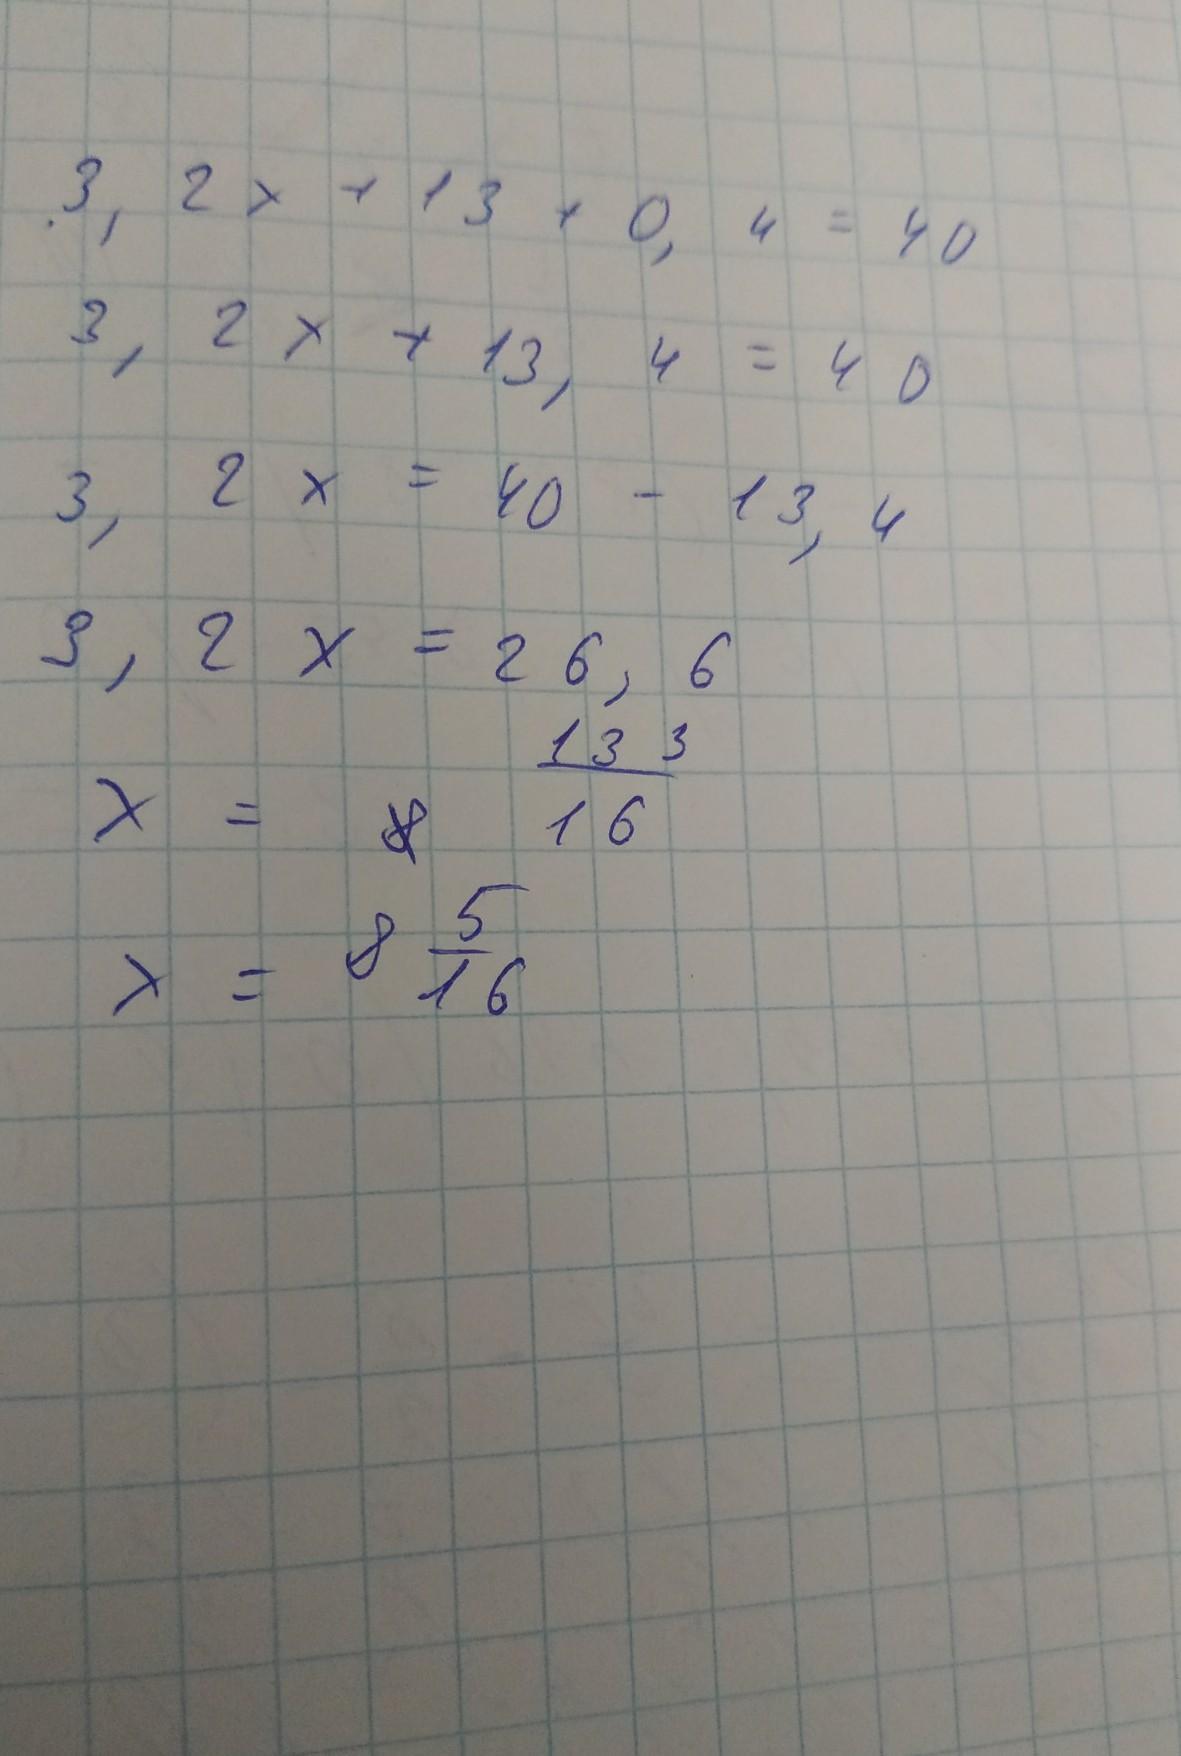 3,2x + 13 + 0,4 = 40
3,2x + 13,4 = 40
3,2x = 40 - 13,4
3,2x = 26,6
x = 133/16
x = 8 5/16